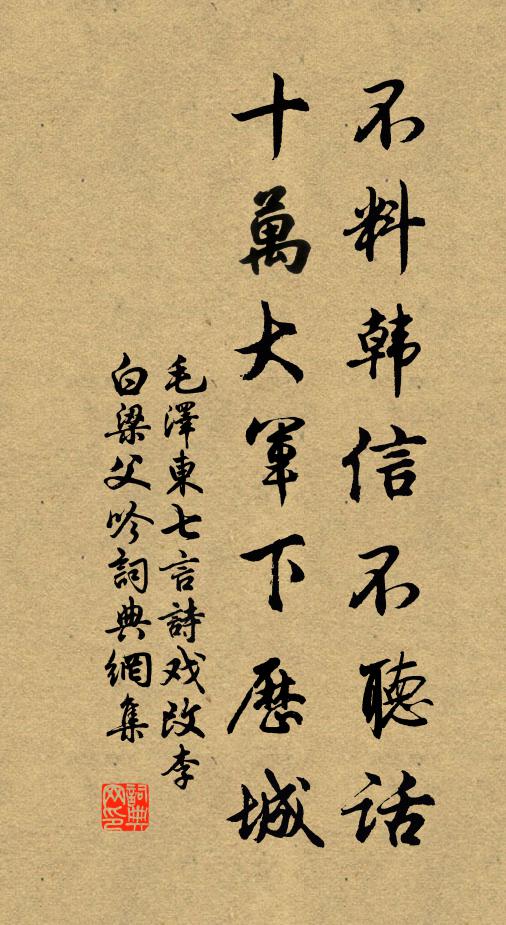 不料韩信不聽话
十萬大軍下歷城
毛澤東七言詩戏改李
白梁父吟詞典網集
詞典网印